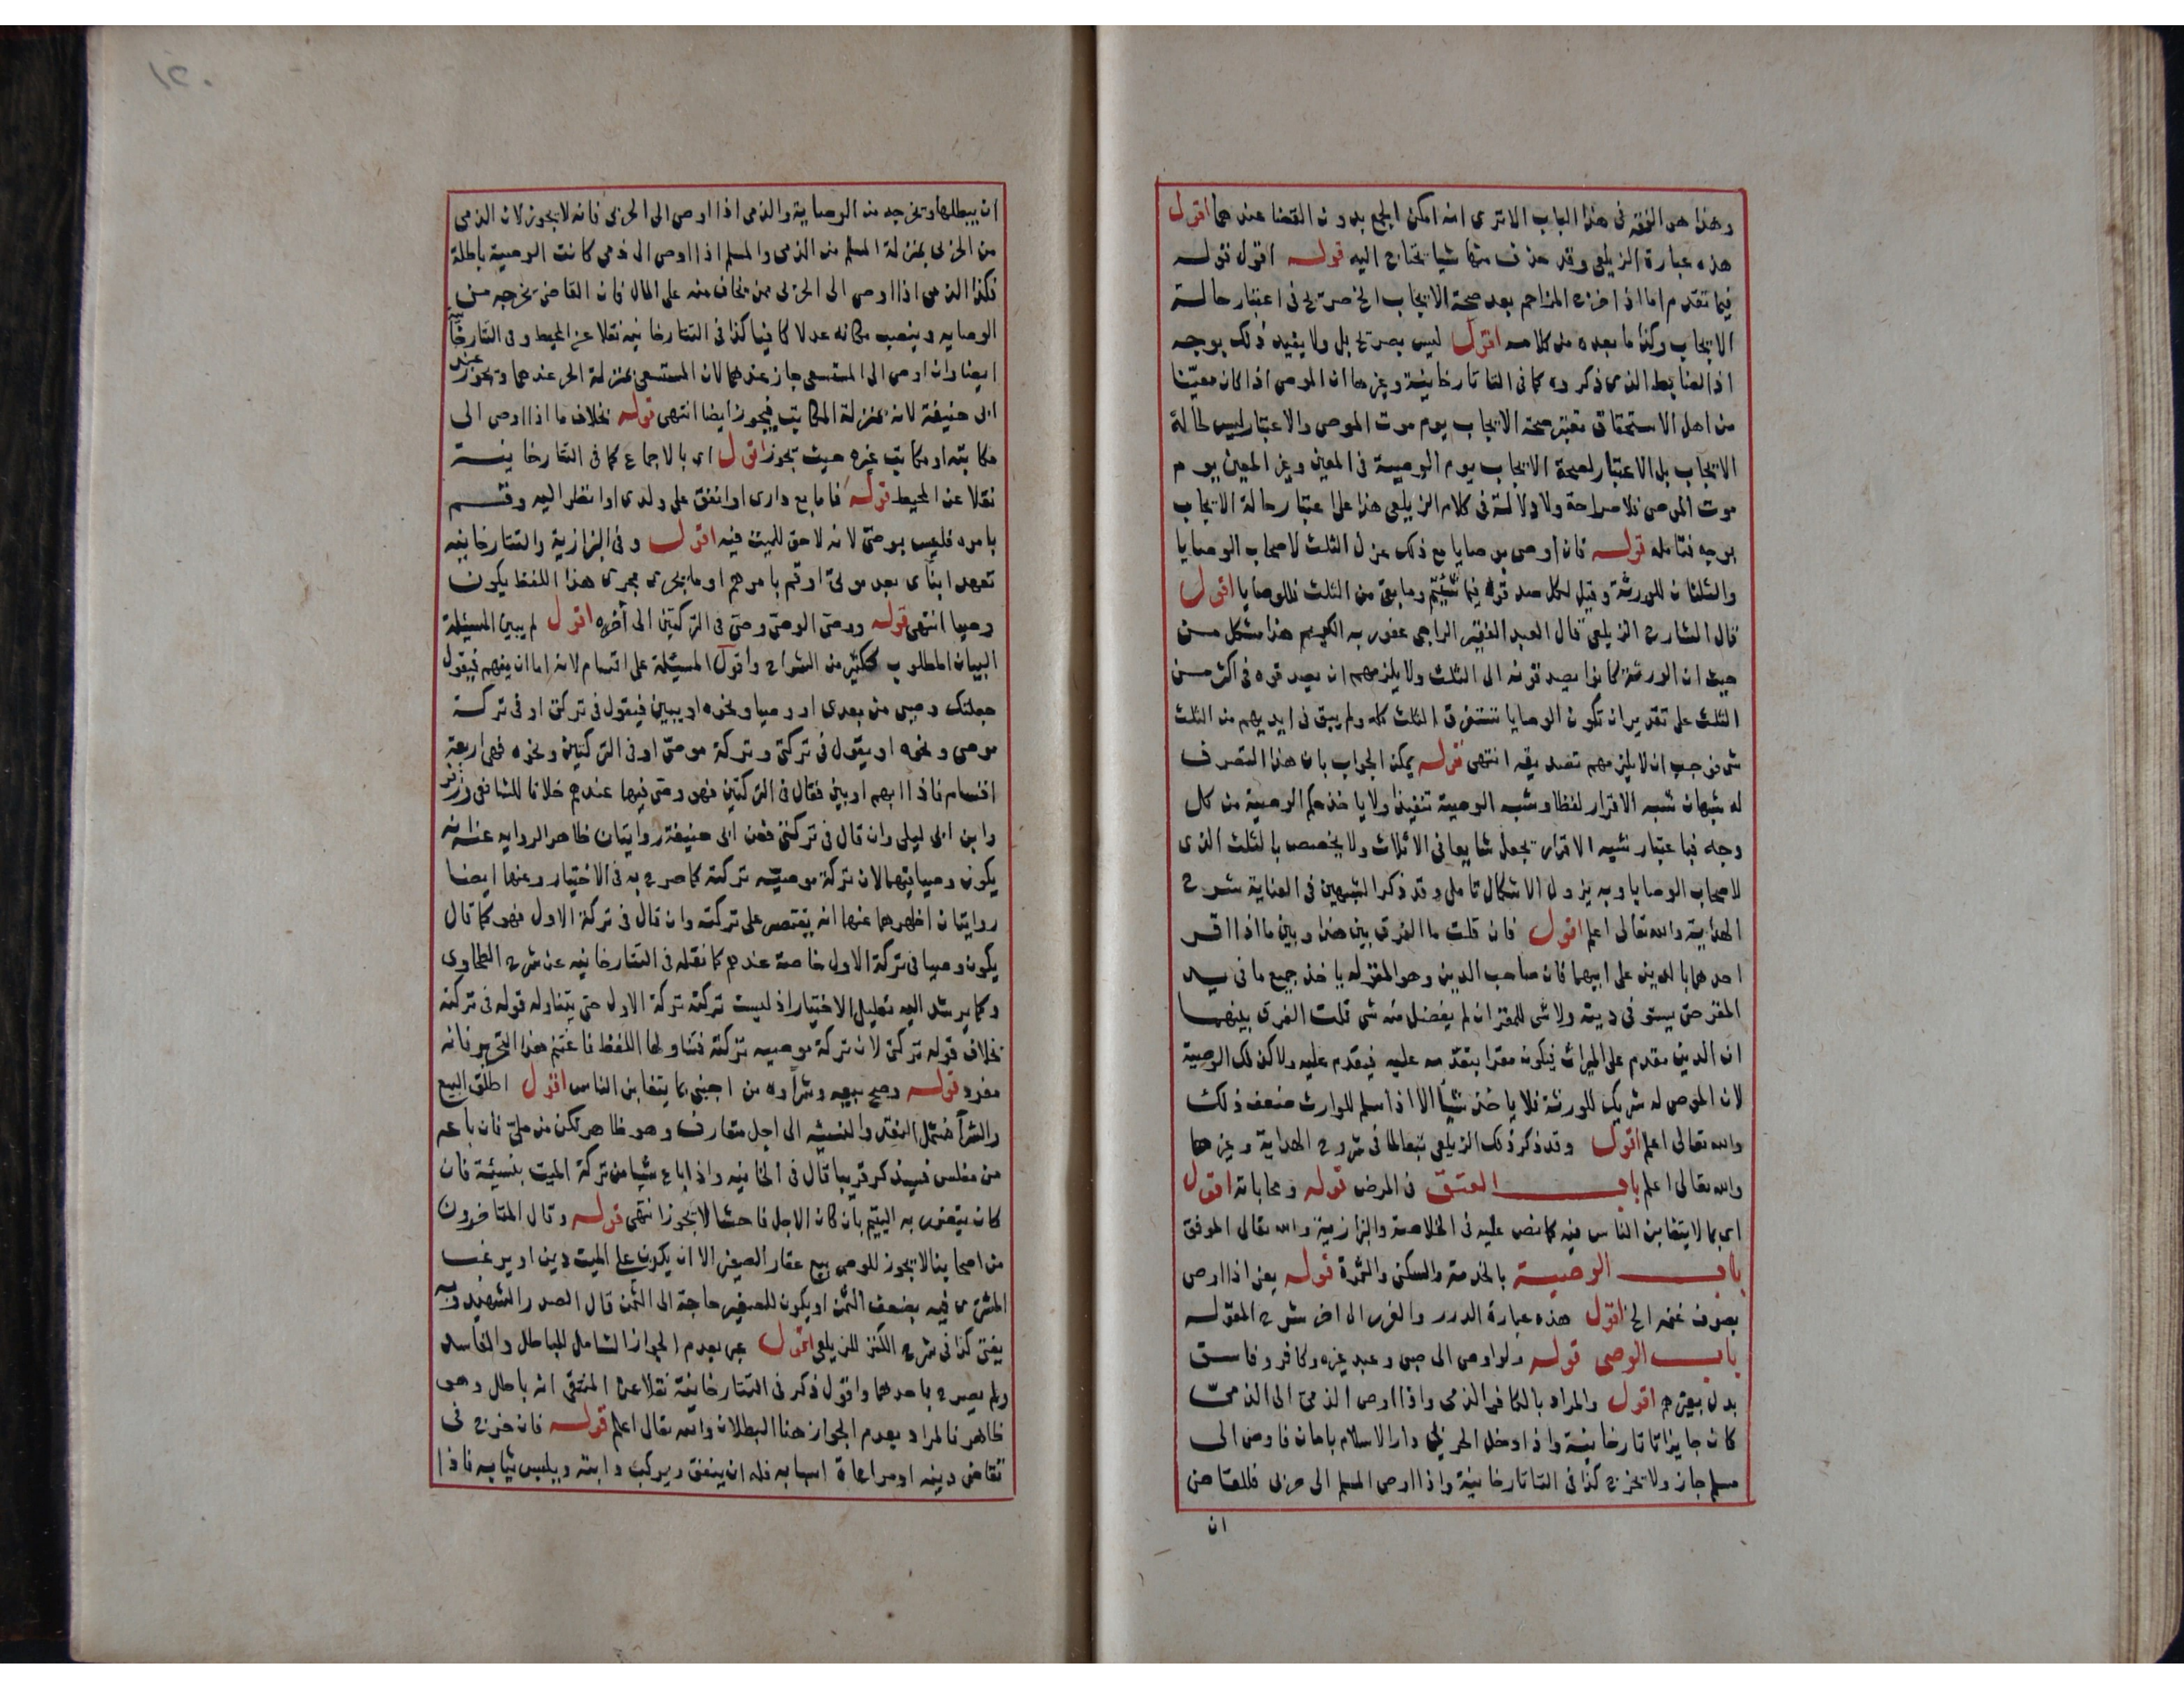 وهذا هو الفقه فى هذا الباب الا ترى انه امكن الجمع بدون القضا عندهما اقول
هذه عبارة الزيلعى وقد حذف منها شيا يحتاج اليه قوله اقول قوله
فيما تقدم اما اذا خرج المزاحم بعد صحة الايجاب الخ صريح فى اعتبار حالة
الايجاب وكذا ما بعده من كلامه اقول ليس بصريح بل ولا يفيد ذلك بوجه
اذ الضابط الذى ذكروه كما فى التاتارخانية وغيرها ان الموصى اذا كان معيّنا
من اهل الاستحقاق تعتبر صحة الايجاب يوم موت الموصى والاعتبار ليس لحالة
الايجاب بل الاعتبار لصحة الايجاب يوم الوصية فى المعين وغير المعين يوم
موت الموصى فلا صراحة ولا دلالة فى كلام الزيلعى هذا على اعتبار حالة الايجاب
بوجه فتامله قوله فان اوصى بوصايا مع ذلك عزل الثلث لاصحاب الوصايا
والثلثان للورثة وقيل لكل صدقوه فيما شئتم وما بقى من الثلث فللوصايا اقول
قال الشارح الزيلعى قال العبد الفقير الراجى عفو ربه الكريم هذا مشكل من
حيث ان الورثة كانوا يصدقونه الى الثلث ولا يلزمهم ان يصدقوه فى اكثر من
الثلث على تقدير ان تكون الوصايا تستغرق الثلث كله ولم يبق فى ايديهم من الثلث
شى فوجب ان لا يلزمهم تصديقه انتهى قوله يمكن الجواب بان هذا التصرف
له شبهان شبه الاقرار لفظا وشبه الوصية تنفيذا ولا ياخذ حكم الوصية من كل
وجه فباعتبار شبه الاقرار يجعل شايعا فى الاثلاث ولا يخصص بالثلث الذى
لاصحاب الوصايا وبه يزول الاشكال تامل وقد ذكر الشبهين فى العناية شرح
الهداية والله تعالى اعلم اقول فان قلت ما الفرق بين هذا وبين ما اذا اقر
احدهما بالدين على ابيهما فان صاحب الدين وهو المقر له ياخذ جميع ما فى يد
المقر حتى يستوفى دينه ولا شى للمقر ان لم يفضل منه شى قلت الفرق بينهما
ان الدين مقدم على الميراث فيكون مقرا بتقدمه عليه فيقدم عليه ولا كذلك الوصية
لان الموصى له شريك للورثة فلا ياخذ شيأ الا اذا سلم للوارث ضعف ذلك
والله تعالى اعلم اقول وقد ذكر ذلك الزيلعى تبعا لما فى شروح الهداية وغيرها
والله تعالى اعلم باب العتق فى المرض قوله ومحاباته اقول
اى بما لا يتغابن الناس فيه كما نص عليه فى الخلاصة والبزازية والله تعالى الموفق
باب الوصية بالخدمة والسكنى والثمرة قوله يعنى اذا اوصى
بصوف غنمه الخ اقول هذه عبارة الدرر والغرر الى اخر شرح المقوله
باب الوصى قوله ولو اوصى الى صبى وعبد غيره وكافر وفاسق
بدل بغيرهم اقول والمراد بالكافر الذمى واذا اوصى الذمى الى الذمىّ
كان جايزا تاتارخانية واذا دخل الحربى دار الاسلام بامان فاوصى الى
مسلم جاز ولا يخرج كذا فى التاتارخانية واذا اوصى المسلم الى حربى فللقاضى
ان
ان يبطلها ويخرجه من الوصاية والذمى اذا اوصى الى الحربى فانه لا يجوز لان الذمى
من الحربى بمنزلة المسلم من الذمى والمسلم اذا اوصى الى ذمى كانت الوصية باطلة
فكذا الذمى اذا اوصى الى الحربى ممن يخاف منه على المال فان القاضى يخرجه من
الوصايه وينصب مكانه عدلا كافيا كذا فى التتارخانيه نقلا عن المحيط وفى التتارخانية
ايضا وان اوصى الى المستسعى جاز عندهما لان المستسعى بمنزلة الحر عندهما ويجوز عند
ابى حنيفة لانه بمنزلة المكاتب فيجوز ايضا انتهى قوله بخلاف ما اذا اوصى الى
مكاتبه او مكاتب غيره حيث يجوز اقول اى بالاجماع كما فى التتارخانية
نقلا عن المحيط قوله فاما بع دارى او انفق على ولدى او انظر اليه وقسم
بامره فليس بوصىّ لانه لا حق للميت فيه اقول وفى البزازية والتتارخانيه
تعهد ابنأى بعد موتى او قم بامرهم او ما يجرى مجرى هذا اللفظ يكون
وصيا انتهى قوله ووصىّ الوصىّ وصىّ فى التركتين الى أخره اقول لم يبين المسئلة
البيان المطلوب ككثير من الشراح واقول المسئلة على اقسام لانه اما ان يبهم فيقول
جعلتك وصيى من بعدى او وصيا ونحوه او يبين فيقول فى تركتى او فى تركة
موصى ونحوه او يقول فى تركتى وتركة موصىّ او فى التركتين ونحوه فهى اربعة
اقسام فاذا ابهم او بين فقال فى التركتين فهو وصى فيها عندهم خلافا للشافعى وزفر
وابن ابى ليلى وان قال فى تركتى فعن ابى حنيفة روايتان ظاهر الروايه عنه انه
يكون وصيا فيهما لان تركة موصيه تركته كما صرح به فى الاختيار وعنها ايضا
روايتان اظهرهما عنها انه يقتصر على تركته وان قال فى تركة الاول فهو كما قال
يكون وصيا فى تركة الاول خاصة عندهم كما نقله فى التتارخانيه عن شرح الطحاوى
وكما يرشد اليه تعليل الاختيار اذ ليست تركته تركة الاول حتى يتناوله قوله فى تركته
بخلاف قوله تركتى لان تركة موصيه تركته فتناولها اللفظ فاغتنم هذا التحرير فانه
مفرد قوله وصح بيعه وشرأوه من اجنبى بما يتغابن الناس اقول اطلق البيع
والشرأ فشمل النقد والنسئيه الى اجل متعارف وهو ظاهر لكن من ملىّ فان باعه
من مفلس فسيذكر قريبا قال فى الخانيه واذا باع شيا من تركة الميت بنسيئة فان
كان يتضرر به اليتيم بان كان الاجل فاحشا لا يجوز انتهى قوله وقال المتاخرون
من اصحابنا لا يجوز للوصى بيع عقار الصغير الا ان يكون على الميت دين او يرغب
المشترى فيه بضعف الثمن او يكون للصغير حاجة الى الثمن قال الصدر الشهيد وبه
يفتى كذا فى شرح الكنز للزيلعى اقول عبر بعدم الجواز الشامل للباطل والفاسد
ولم يصرح باحدهما واقول ذكر فى التتارخانية نقلا عن المنتقى انه باطل وهو
ظاهر فالمراد بعدم الجواز هنا البطلان والله تعالى اعلم قوله فان خرج فى
تقاضى دينه او مراعاة اسبابه فله ان ينفق ويركب دابته ويلبس ثيابه فاذا